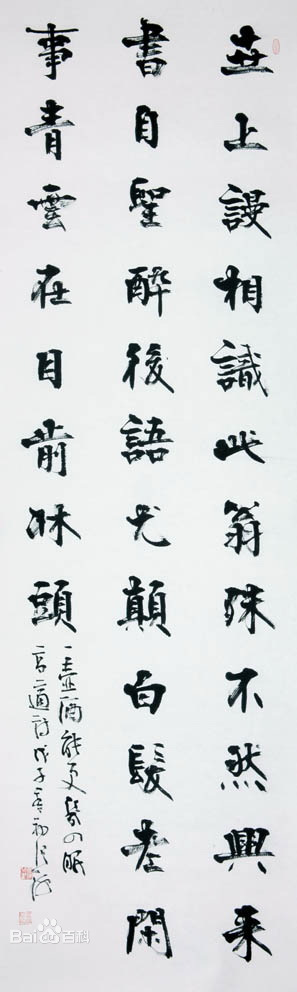 世上謾相識此翁殊不然興来
書自聖醉後語尤顛白髮老閑
事青雲在目前牀頭
一壺酒能更幾回眠
高適詩戊子春初
Bai du 百科